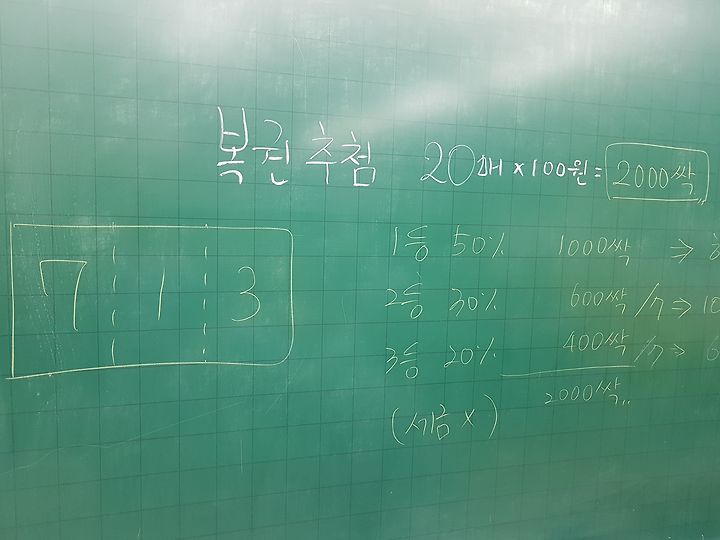 복권 추첨 20매 x 100원 = 2000싹
7 1 3
1등 50% 1000싹 ⇒
2등 30% 600싹 /7 ⇒ 10
3등 20% 400싹 /7 ⇒ 6
2000싹..
(세금 x)